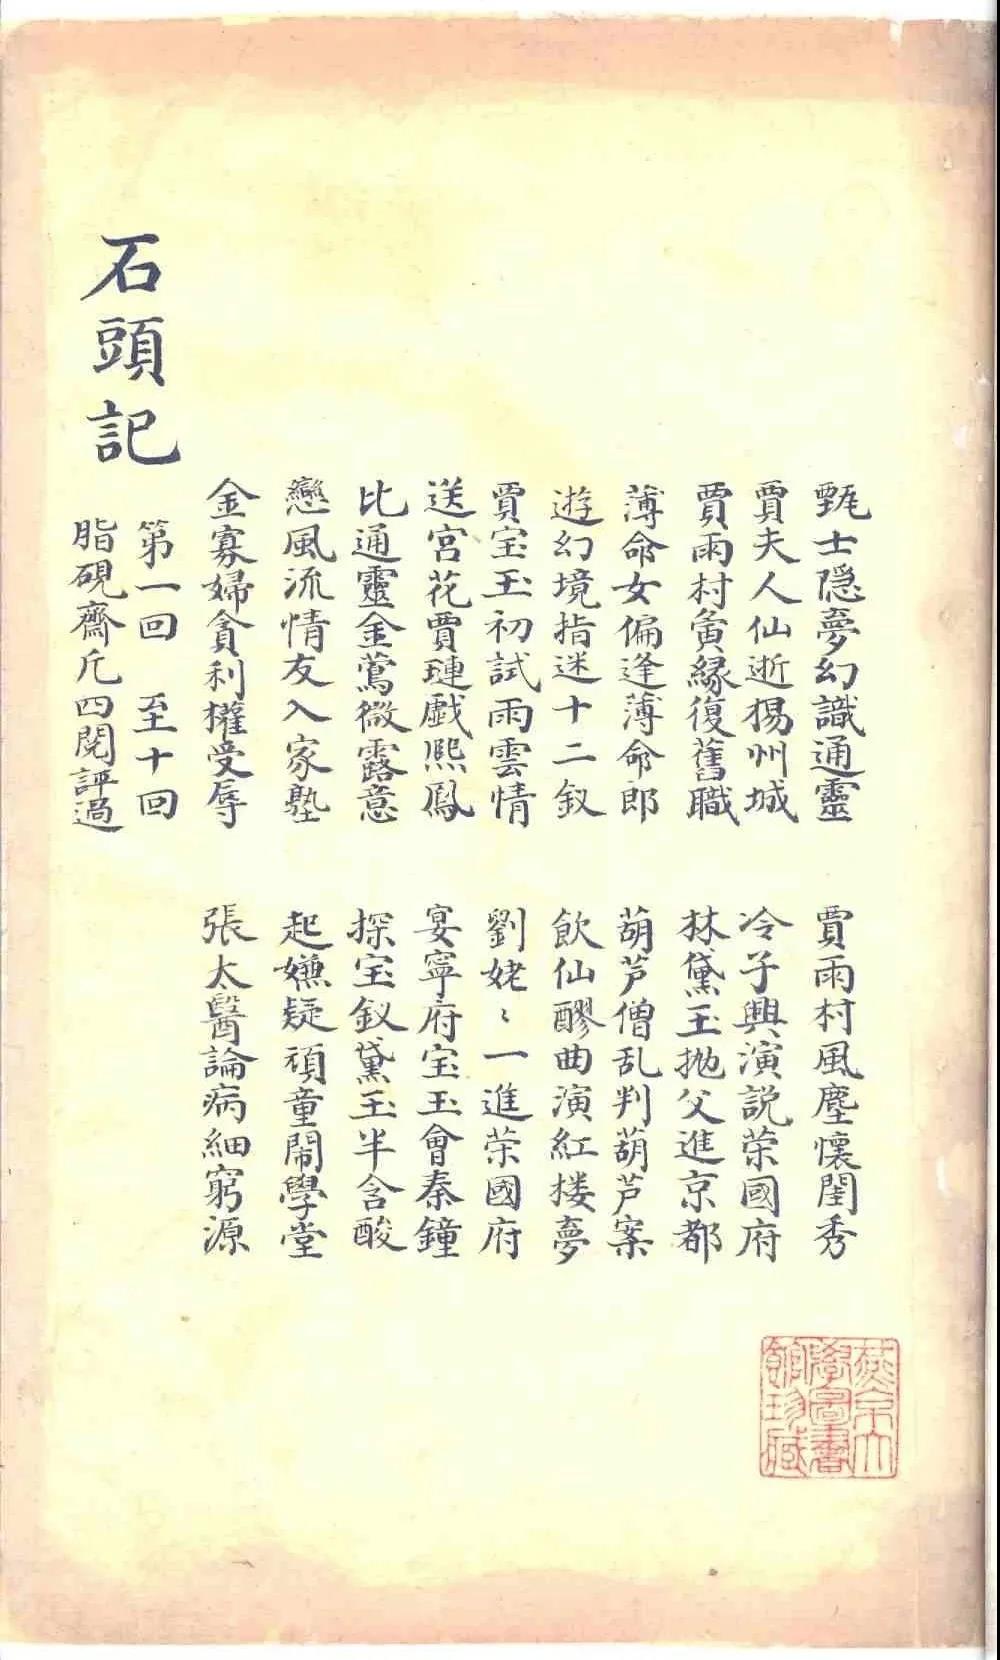 甄士隐夢幻識通靈　賈雨村風塵懷閨秀
賈夫人仙逝揚州城　冷子興演説荣國府
賈雨村夤緣復舊職　林黛玉抛父進京都
薄命女偏逢薄命郎　葫芦僧乱判葫芦案
遊幻境指迷十二釵　飲仙醪曲演紅楼夢
賈宝玉初試雨雲情　劉姥〻一進荣國府
送宮花賈璉戲熙鳳　宴寧府宝玉會秦鐘
比通靈金鶯微露意　探宝釵黛玉半含酸
戀風流情友入家塾　起嫌疑頑童鬧學堂
金寡婦貪利權受辱　張太醫論病細窮源
第一回　至十回
脂硯齋凡四閱評過
石頭記
燕京大
學圖書
館珍藏